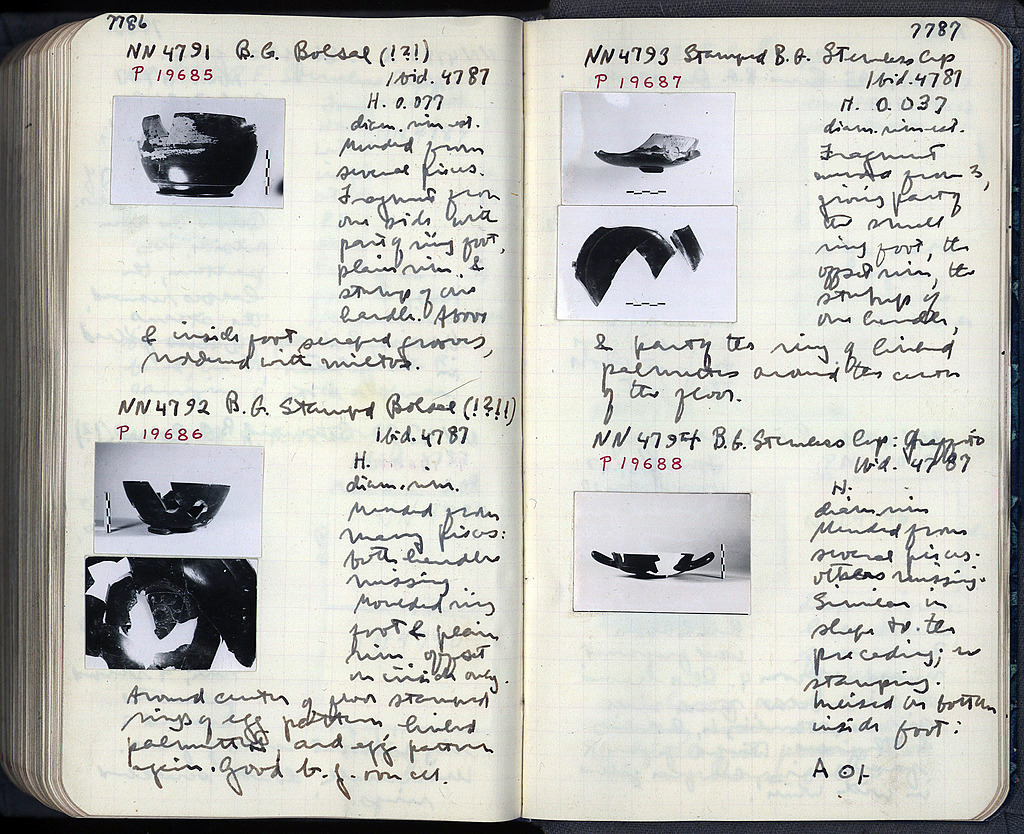 7786
NN4791 B.G. Bolsal (!?!)
P 19685
Ibid. 4787
H. 0.077
diam. rim est.
Mended from
several pieces.
Fragment from
one side with
part of ring foot,
plain rim, &
stump of one
handle. Above
& inside foot scraped grooves,
reddened with miltos.
NN4792 B.G. Stamped Bolsal (!?!!)
P 19686
Ibid. 4787
H.
diam. rim.
Mended from
many pieces:
both handles
missing.
Moulded ring
foot & plain
rim offset
on inside only.
Around center of floor stamped
rings of egg pattern, linked
palmettes, and egg pattern
again. Good b.g. over all.
7787
NN4793 Stamped B.G. Stemless Cup
P 19687
Ibid. 4787
H. 0.037
diam. rim est.
Fragment
mended from 3,
giving part of
the small
ring foot, the
offset rim, the
stumps of
one handle,
& part of the ring of linked
palmettes around the center
of the floor.
NN4794 B.G. Stemless Cup: Graffito
P 19688
Ibid. 4787
H.
diam. rim
Mended from
several pieces:
others missing.
Similar in
shape to the
preceding; no
stamping.
Incised on bottom
inside foot: